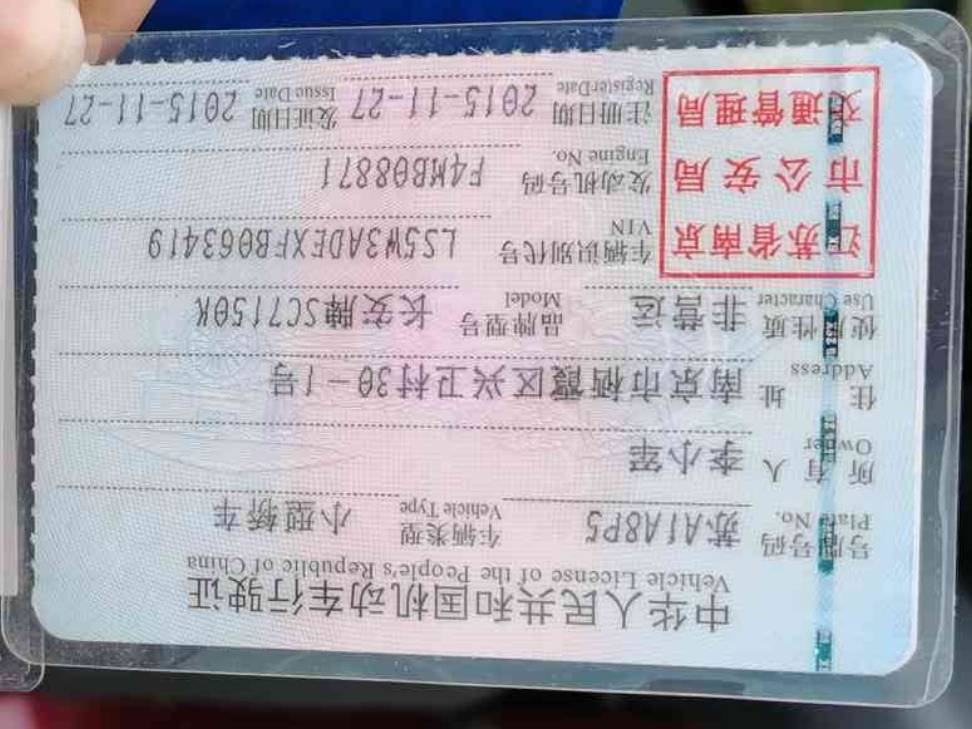 中华人民共和国机动车行驶证
Vehicle License of the People's Republic of China
号牌号码 苏A1A8P5 车辆类型 小型轿车
Plate No. Vehicle Type
所有人 李小军
Owner
住址 南京市栖霞区兴卫村30-1号
Address
使用性质 非营运 品牌型号 长安牌SC7150K
Use Character Model
江苏省南京
市公安局
交通管理局
车辆识别代号 LS5W3ADEXFB063419
VIN
发动机号码 F4MB08871
Engine No.
注册日期 2015-11-27 发证日期 2015-11-27
RegisterDate Issue Date